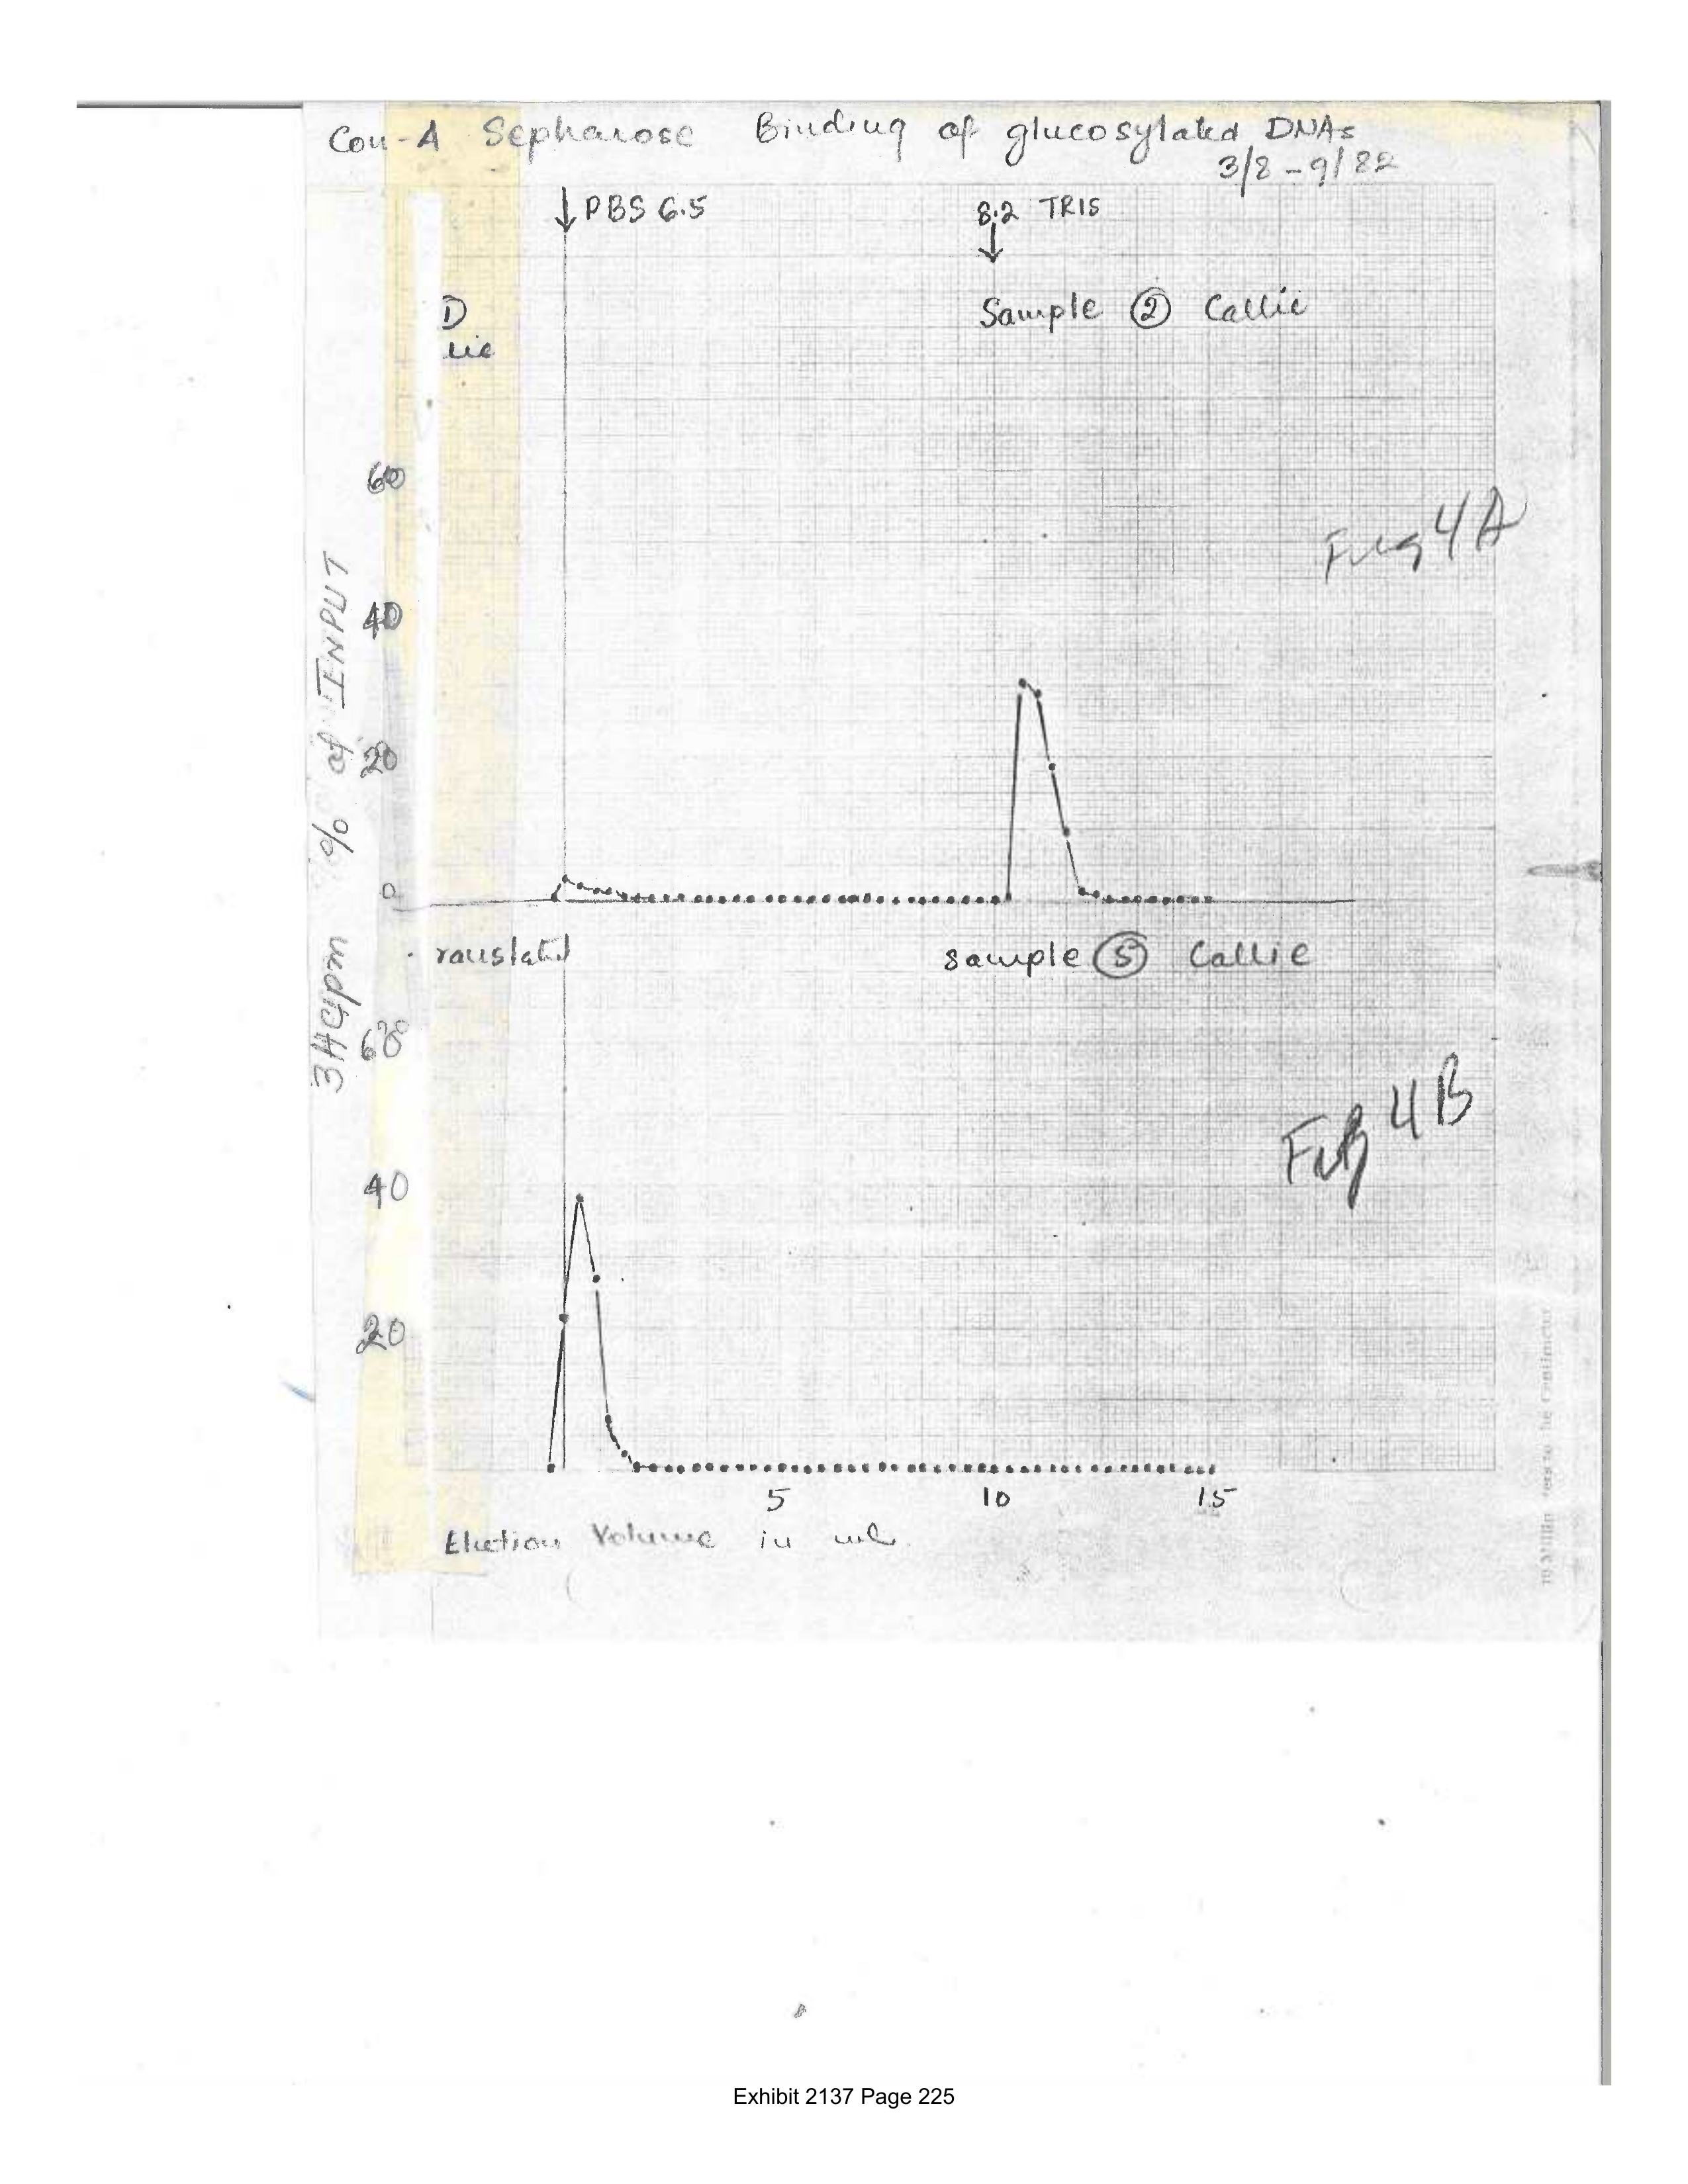 Con-A Sepharose Binding of glucosylated DNAs
3/8-9/82
PBS 6.5
8.2 TRIS
D
lie
Sample ② Callie
60
Fig 4A
40
20
0
3Hcpm % of INPUT
ranslated
Sample ⑤ Callie
60
Fig 4B
40
20
5 10 15
Elution Volume in ml.
Exhibit 2137 Page 225